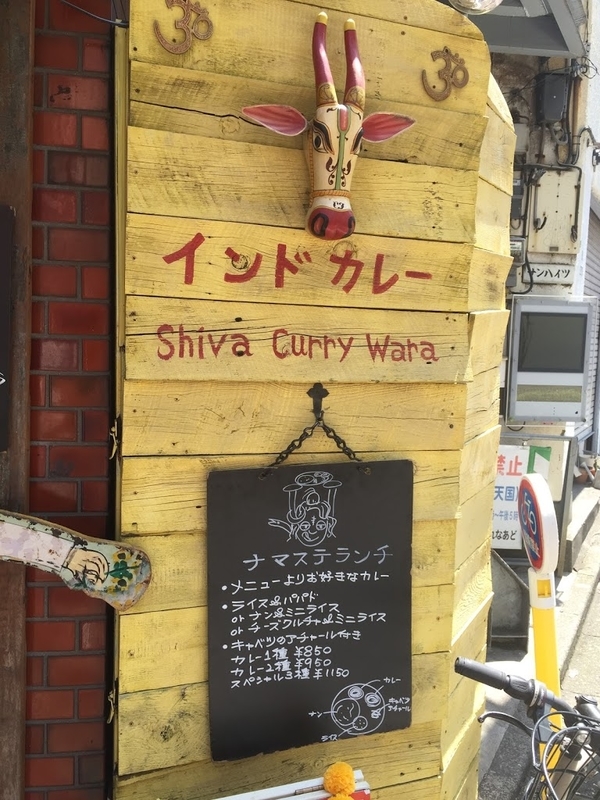 ॐ
ॐ
インドカレー
Shiva Curry Wara
サンハイツ
ナマステランチ
・メニューよりお好きなカレー
・ライス&パパド
or ナン&ミニライス
or チーズクルチャ&ミニライス
・キャベツのアチャール付き
カレー1種 ¥850
カレー2種 ¥950
スペシャル3種 ¥1150
カレー
キャベツ
アチャール
ナン
ライス
禁止
天国